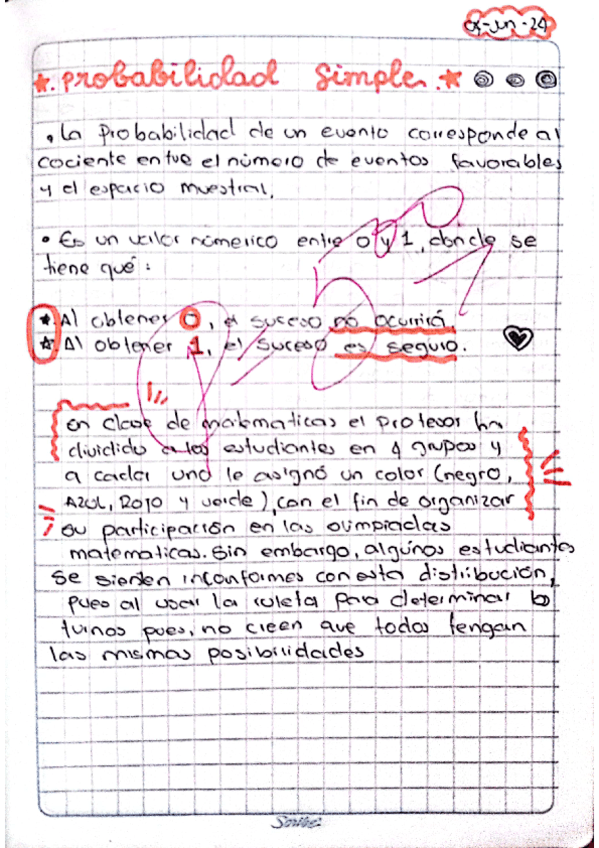 04-Jun-24
★. Probabilidad Simple. ★
• La Probabilidad de un evento corresponde al
cociente entre el número de eventos favorables
y el espacio muestral.
• Es un valor númerico entre 0 y 1, donde se
tiene qué:
★ Al obtener 0, el suceso no ocurrirá.
★ Al obtener 1, el suceso es seguro.
En clase de matematicas el profesor ha
dividido a los estudiantes en 4 grupos y
a cada uno le asignó un color (negro,
Azul, Rojo y verde), con el fin de organizar
su participación en las olimpiadas
matematicas. Sin embargo, algunos estudiantes
se sienten inconformes con esta distribución,
pues al usar la ruleta para determinar los
turnos pues, no creen que todos tengan
las mismas posibilidades
Scribe